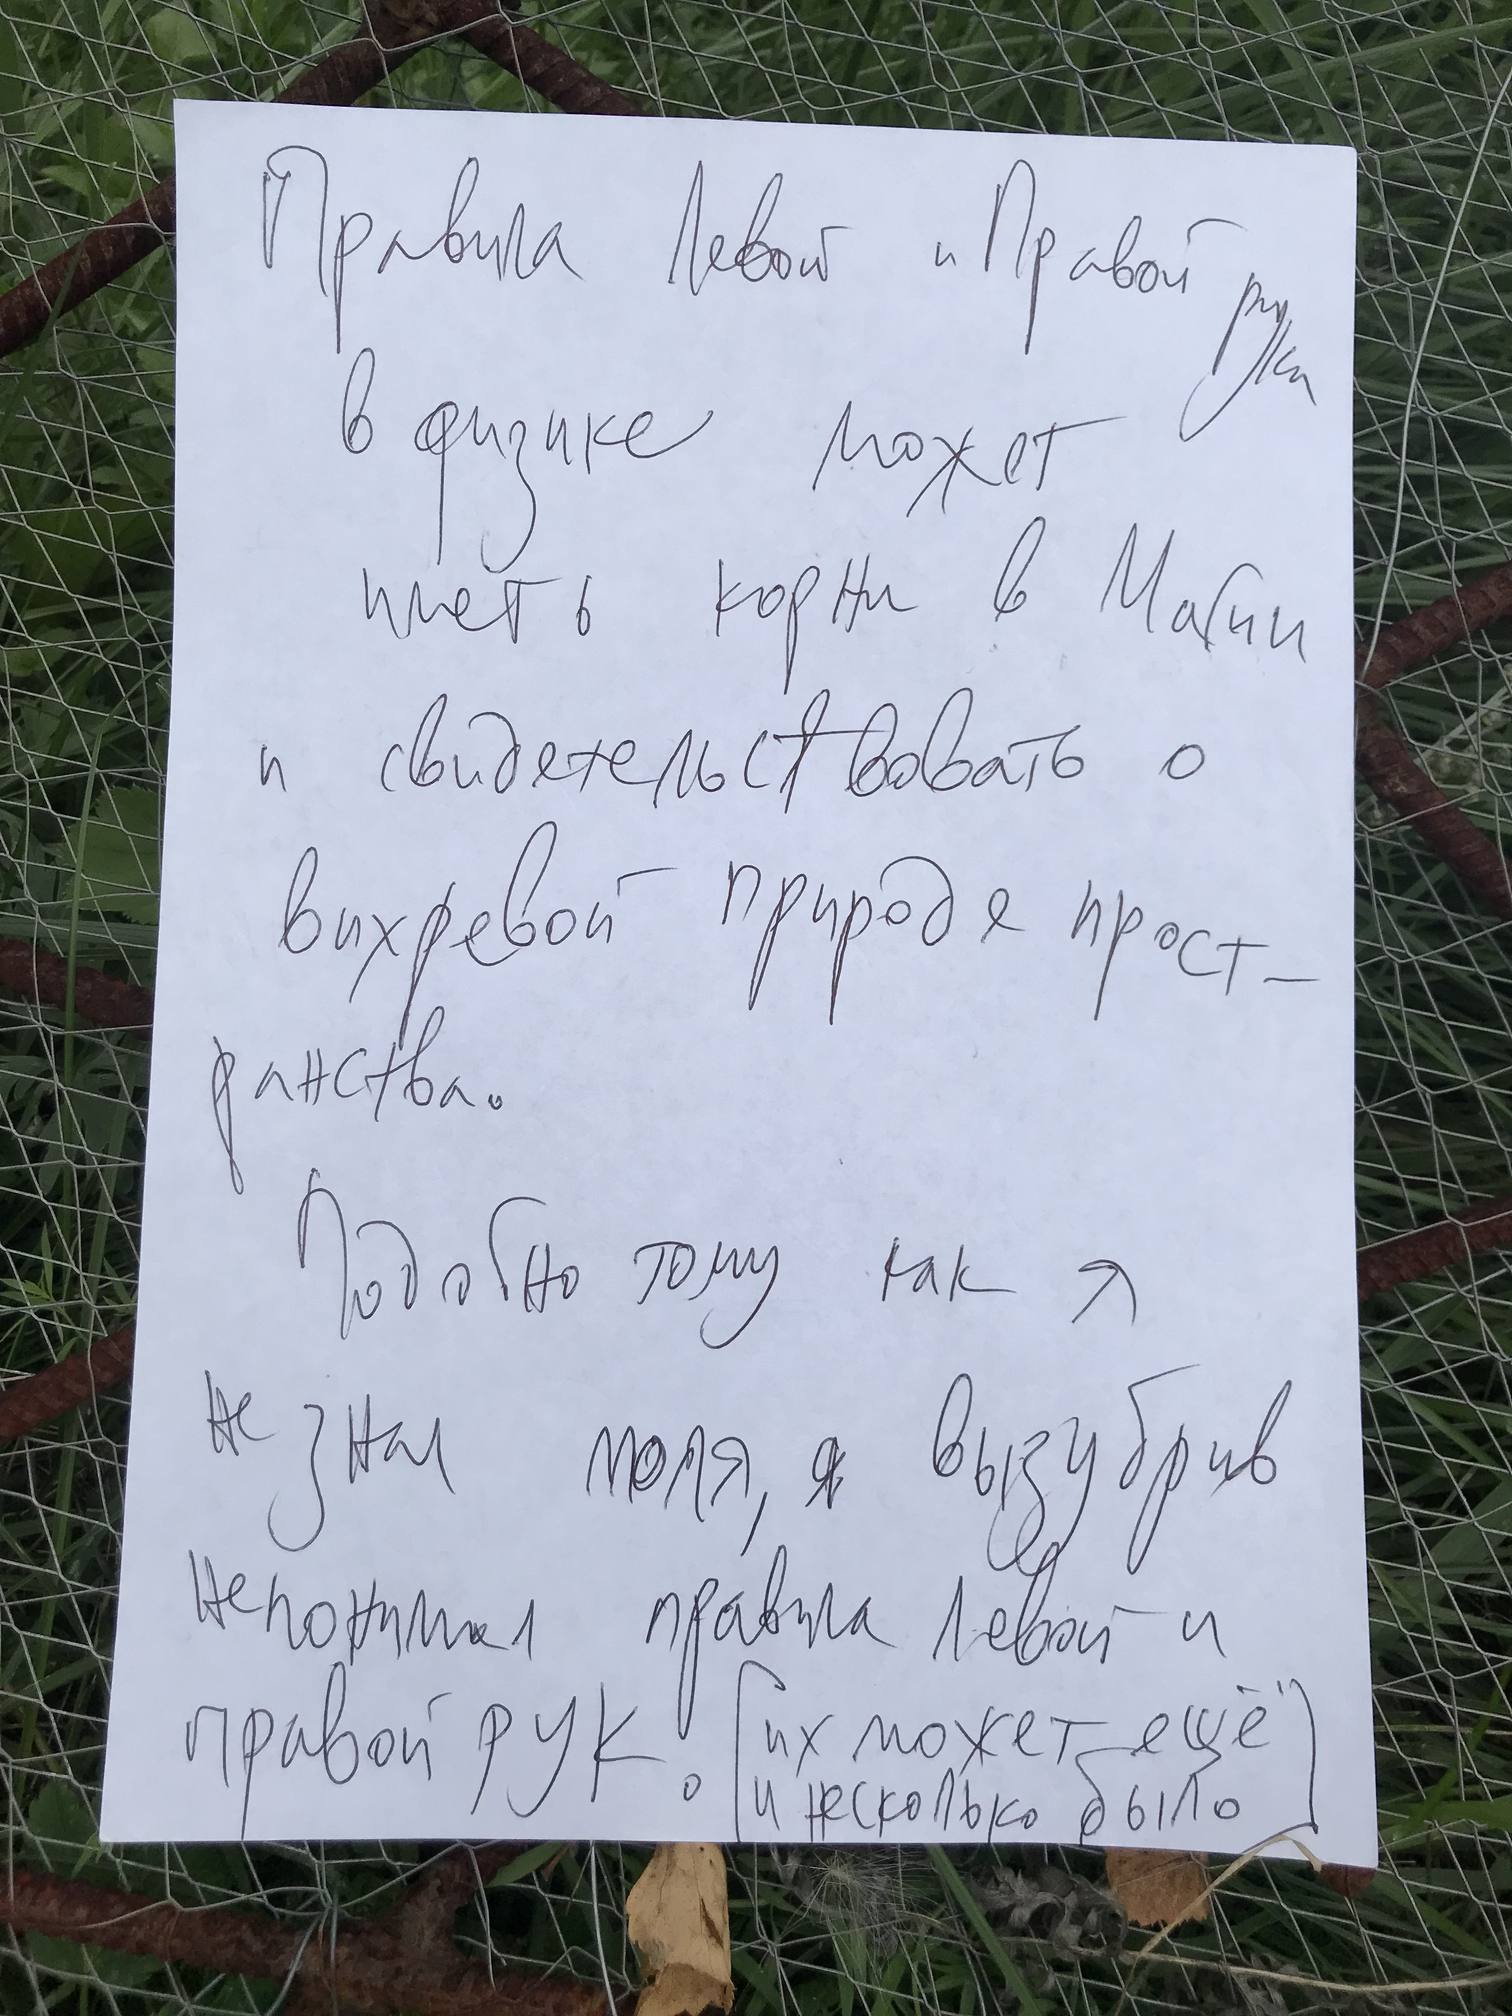 Правила Левой и Правой руки
в физике может
иметь корни в Магии
и свидетельствовать о
вихревой природе прост-
ранства.
Подобно тому как я
не знал моля, я вызубрив
непонимал правила левой и
правой рук. (их может ещё
и несколько было)